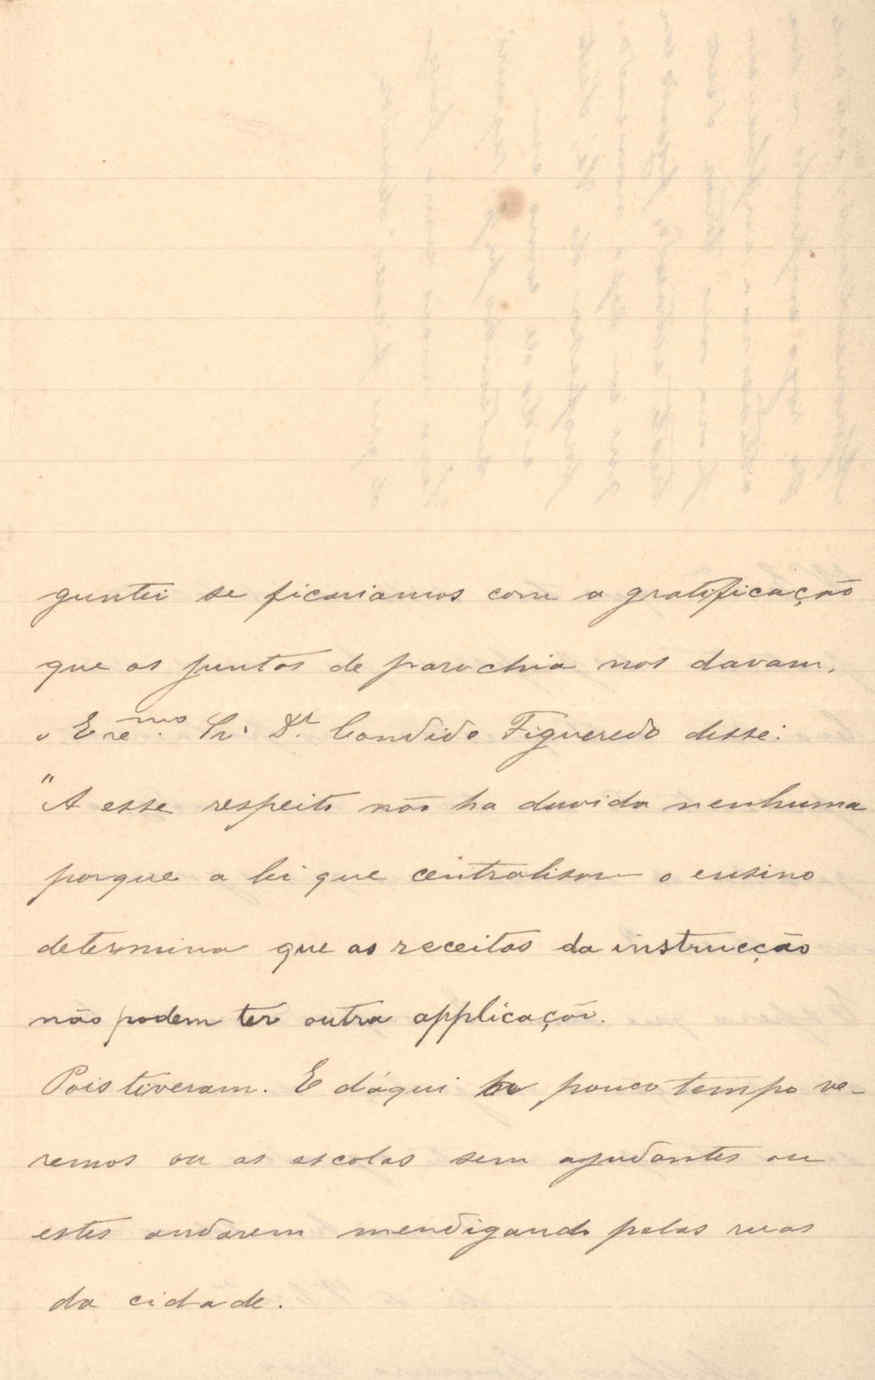 guntei se ficariamos com a gratificação
que as juntas de parochia nos davam,
o Ex.mo Sr. Dr. Candido Figueredo disse:
"A esse respeito não ha duvida nenhuma
porque a lei que centralisou o ensino
determina que as receitas da instrucção
não podem ter outra applicação.
Pois tiveram. E d'aqui ha pouco tempo ve-
remos ou as escolas sem ajudantes ou
estes andarem mendigando pelas ruas
da cidade.